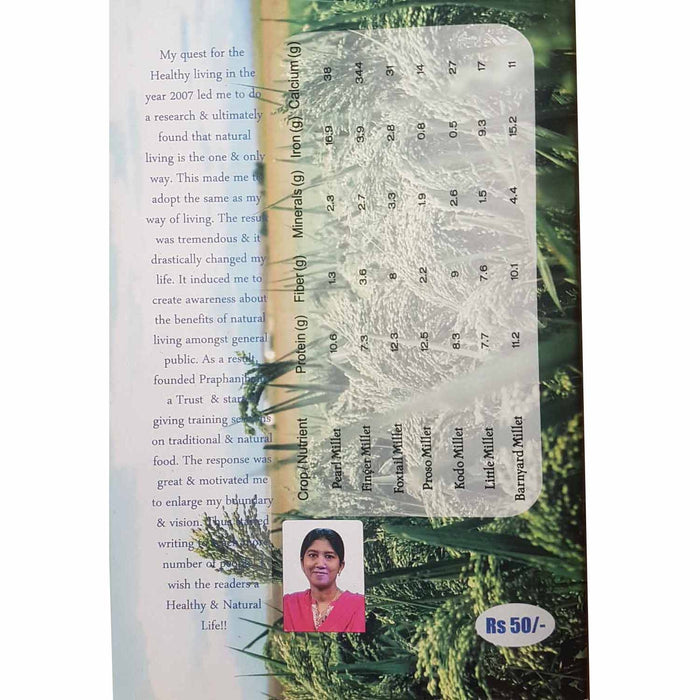 My quest for the
Healthy living in the
year 2007 led me to do
a research & ultimately
found that natural
living is the one & only
way. This made me to
adopt the same as my
way of living. The result
was tremendous & it
drastically changed my
life. It induced me to
create awareness about
the benefits of natural
living amongst general
public. As a result,
founded
a Trust & star
giving training
on traditional & natural
food. The response was
great & motivated me
to enlarge my boundary
& vision. Thus started
writing
number of
wish the readers a
Healthy & Natural
Life!!
Crop / Nutrient Protein (g) Fiber (g) Minerals (g) Iron (g) Calcium (g)
Pearl Millet 10.6 1.3 2.3 16.9 38
Finger Millet 7.3 3.6 2.7 3.9 344
Foxtail Millet 12.3 8 3.3 2.8 31
Proso Millet 12.5 2.2 1.9 0.8 14
Kodo Millet 8.3 9 2.6 0.5 27
Little Millet 7.7 7.6 1.5 9.3 17
Barnyard Millet 11.2 10.1 4.4 15.2 11
Rs 50/-